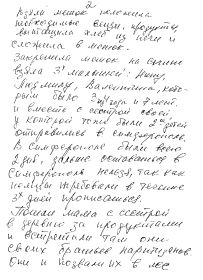 2
Взяла мешок положила
необходимые вещи, продукты,
вытащила хлеб из печи и
сложила в мешок.
Закрепила мешок на спине
взяла 3х малышей: Нину,
Людмилу, Валентина, кото-
рым было 3 года и 7 лет.
и вместе с сестрой своей
у которой тоже были 2е детей
отправились в Симферополь.
В Симферополе были всего
2 дня, дальше оставаться в
Симферополе нельзя, так как
немцы требовали в течение
3х дней прописаться.
Пошли мама с сестрой
в деревню за продуктами
встретили там они
своих братьев партизанов
Они и позвали их в лес